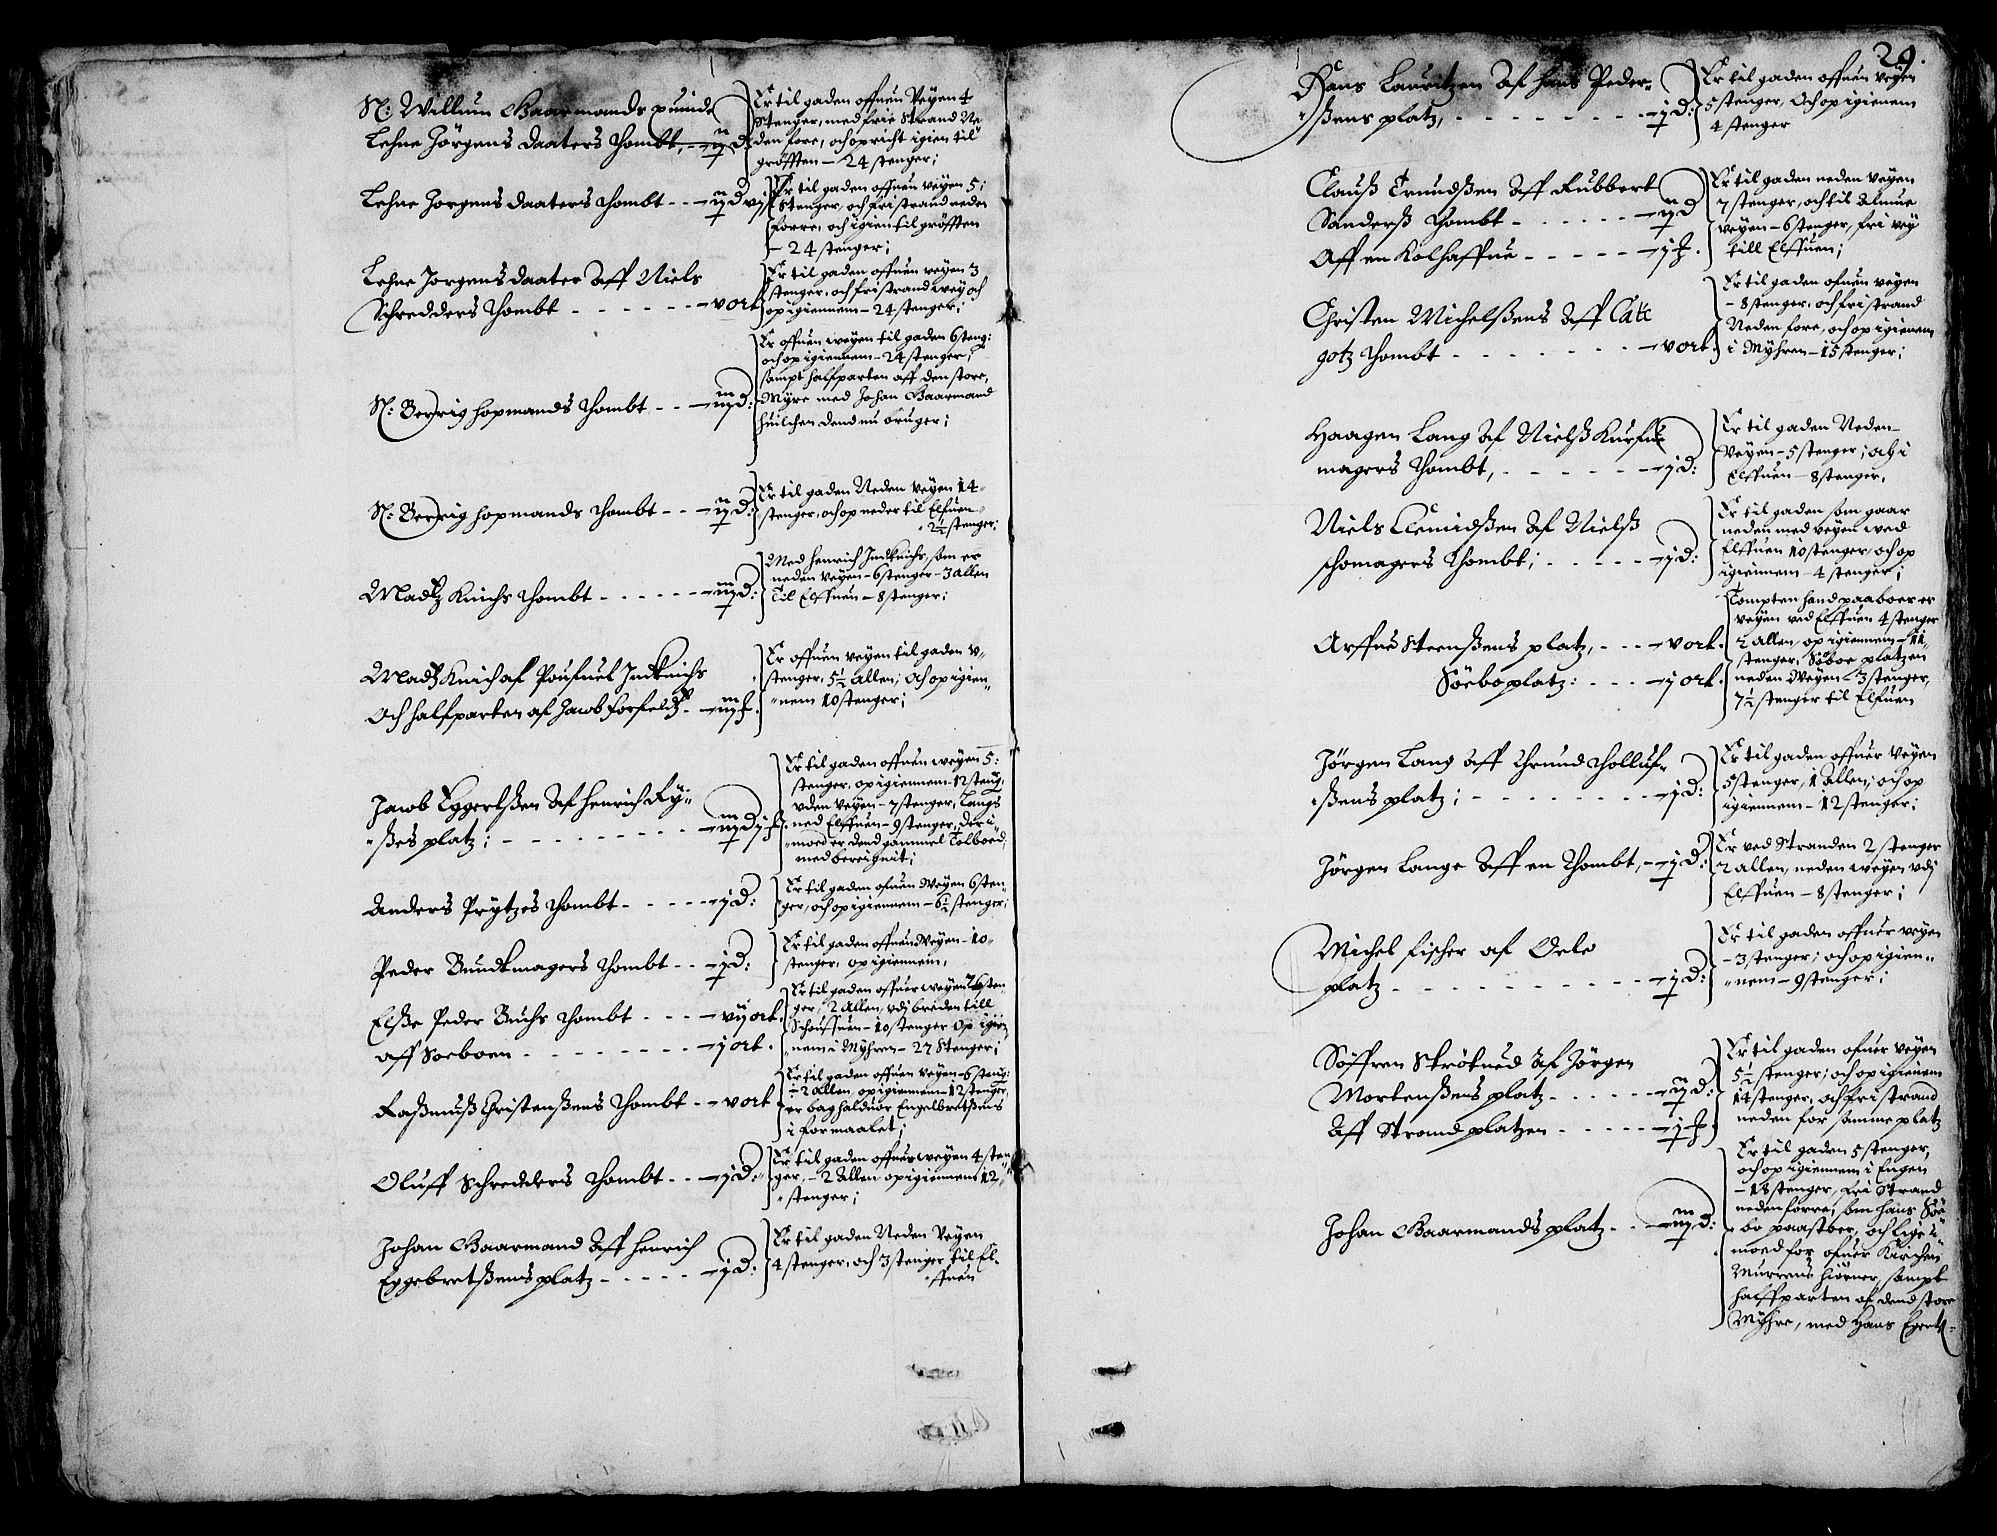 S: Willum Baarmands puinde
Lehne Jörgens daaters thombt, - ij d:
Er til gaden offuen Veyen 4
Stenger, med frie Strand Ne
den fore, och opricht igien til
gröfften - 24 stenger;
Lehne Jörgens daaters thombt - - - ij d
Er til gaden offuen veyen 5;
Stenger, och fri strand neden
forre, och igien til gröfften
- 24 stenger;
Lehne Jorgens daater Aff Niels
Schredders thombt - - - - - - - v ort
Er til gaden offuen veyen 3
stenger, och fri strand wey och
op igiennem - 24 stenger;
S: Berrig hopmands thombt - - - iij d:
Er offuen weyen til gaden 6 steng:
och op igiennem - 24 stenger;
sampt halfparten aff den store,
Myre med Johan Baarmand
huilchen dend nu bruger;
S: Berrig hopmands thombt - - - ij d:
Er til gaden Neden veyen 14
stenger, och op neder til Elfuen
2½ stenger;
Madtz Knichs thombt - - - - - - iij d:
Med henrich Indknichs, som er
neden veyen - 6 stenger - 3 allen
Til Elffuen - 8 stenger;
Madtz Knich af Poufuel Indknichs
Och halfparten af Jacob Forfeldtz - iij
Er offuen veyen til gaden v
stenger, 5½ Allen; Och op igien
nem 10 stenger;
Jacob Eggertßen Af henrich Ry
ßes platz; - - - - - - - - - iij d
Er til gaden offuen weyen 5:
stenger, op igiennem - 12 steng,
vden veyen - 7 stenger, langs
ned Elffuen - 9 stenger, der i
moed er dend gammel Tolboed
med bereignit;
Anders Prytzes thombt - - - - - - j d:
Er til gaden ofuen Weyen 6 sten
ger, och op igiennem - 6½ stenger;
Peder Bundtmagers thombt - - - j d:
Er til gaden offuen Weyen - 10
stenger, op igiennem,
Elße Peder Buchs thombt - - - - vij ort.
aff Soeboen - - - - - - - - - - j ort.
Er til gaden offuer weyen 26 sten
ger, 2 Allen, vdj breden till
Schouffuen - 10 stenger Op igien
nem i Myhren - 27 Stenger;
Raßmuß Christenßens thombt - - v ort
Er til gaden offuen veyen - 6 steng:
- 2 Allen, op igiennem - 12 stenger,
er bag halduor Engelbretßens
i formaalet;
Oluff Schredders thombt - - - j d:
Er til gaden offuer weyen 4 sten
ger, - 2 Allen op igiennem 12
stenger;
Johan Baarmand Aff henrich
Eggebretßens platz - - - - - - j d:
Er til gaden Neden Veyen
4 stenger, och 3 stenger til El
ffuen
29.
Hans Lauritzen Af hans Peder
ßens platz, - - - - - - - - - - j d:
Er til gaden offuen veyen
5 stenger, Och op igienem
4 stenger
Clauß Trundßen Aff Rubbert
Sanderß thombt - - - - - - - ij d
Aff en Kolhaffue - - - - - - j
Er til gaden neden veyen
7 stenger, och til Almue
veyen - 6 stenger, fri vey
till Elffuen;
Christen Michelßens Aff
gotz thombt - - - - - - - - v ort
Er til gaden ofuen veyen
- 8 stenger, och fri strand
Neden fore, och op igienem
i Myhren - 15 stenger;
Haagen Lang Af Nielß Kurfue
magers thombt, - - - - - - - j d:
Er til gaden Neden
Veyen - 5 stenger; och i
Elffuen - 8 stenger,
Niels Clemidßen Af Nielß
schomagers thombt; - - - - - - j d:
Er til gaden som gaar
neden med veyen wed
Elffuen 10 stenger, och op
igiennem - 4 stenger;
Arffue Steenßens platz, - - - - v ort.
Söeboplatz: - - - - j ort.
Tompten hand paaboer er
veyen ved Elffuen 4 stenger
2 Allen, op igiennem - 11
stenger, Söboe platzen
neden Weyen - 3 stenger,
7½ stenger til Elfuen
Jörgen Lang Aff thrund tholluf
ßens platz; - - - - - - - - - j d:
Er til gaden offuer Veyen
5 stenger, 1 Allen, och op
igiennem - 12 stenger;
Jörgen Lange Aff en thombt, - j d:
Er ved Stranden 2 stenger
2 allen, neden weyen vdj
Elffuen - 8 stenger;
Michel fischer af Oele
platz - - - - - - - - - - - - j d:
Er til gaden offuer veyen
- 3 stenger; och op igien
nem - 9 stenger;
Söffren Strötued Af Jörgen
Mortenßens platz - - - - - - ij d:
Aff Strandplatzen - - - - - - j
Er til gaden ofuer veyen
5½ stenger; och op igienem
14 stenger, och fri strand
neden for samme platz
Johan Baarmands platz - - - iij d:
Er til gaden 5 stenger,
och op igiennem i Engen
- 18 stenger, fri Strand
neden forre, som hans Söe
bo paastber, och lige i
moed for ofuer Kirchen
Murrens hiörner, sampt
halffparten af dend store
Myhre, med Hans Egertz